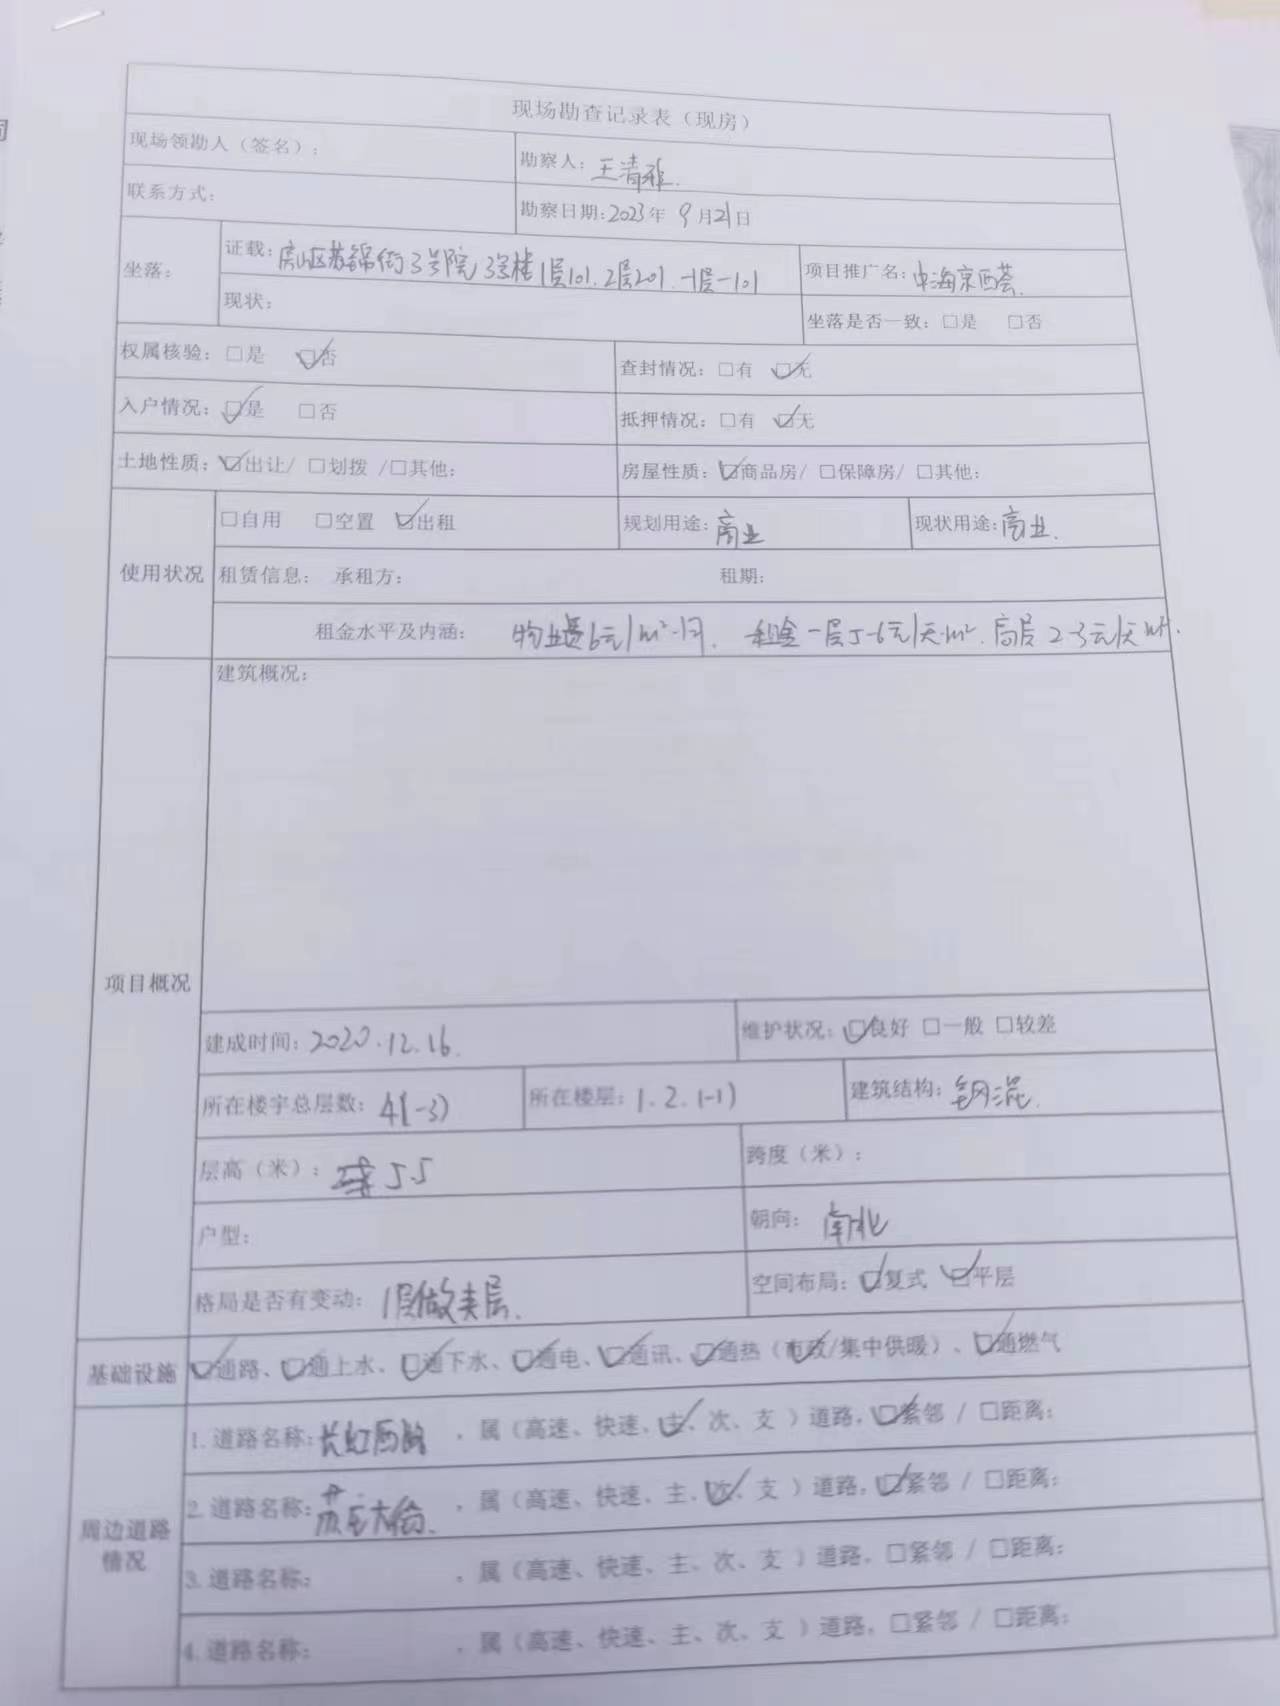 现场勘查记录表（现房）
现场领勘人（签名）： 勘察人：王清
联系方式： 勘察日期：2023年 9月21日
坐落： 证载：房山区苏锦街3号院3号楼1层101.2层201.-1层-101 项目推广名：中海京西荟.
现状： 坐落是否一致：□是 □否
权属核验：□是 ☑否 查封情况：□有 ☑无
入户情况：☑是 □否 抵押情况：□有 ☑无
土地性质：☑出让/ □划拨 /□其他： 房屋性质：☑商品房/ □保障房/ □其他：
使用状况 □自用 □空置 ☑出租 规划用途：商业 现状用途：商业.
租赁信息： 承租方： 租期：
租金水平及内涵： 物业费6元/m²·月. 租金一层5-6元/天·m². 高层2-3元/天·m².
项目概况 建筑概况：
建成时间：2020.12.16. 维护状况：☑良好 □一般 □较差
所在楼宇总层数：4(-3) 所在楼层：1.2.(-1) 建筑结构：钢混.
层高（米）： 5.5 跨度（米）：
户型： 朝向：南北
格局是否有变动：1层做夹层. 空间布局：☑复式 ☑平层
基础设施 ☑通路、☑通上水、☑通下水、☑通电、☑通讯、☑通热（市政/集中供暖）、☑通燃气
周边道路情况 1.道路名称：长虹西路 ，属（高速、快速、主、次、支 ）道路，☑紧邻 / □距离：
2.道路名称：大街. ，属（高速、快速、主、次、支 ）道路，☑紧邻 / □距离：
3.道路名称： ，属（高速、快速、主、次、支 ）道路，□紧邻 / □距离：
4.道路名称： ，属（高速、快速、主、次、支 ）道路，□紧邻 / □距离：